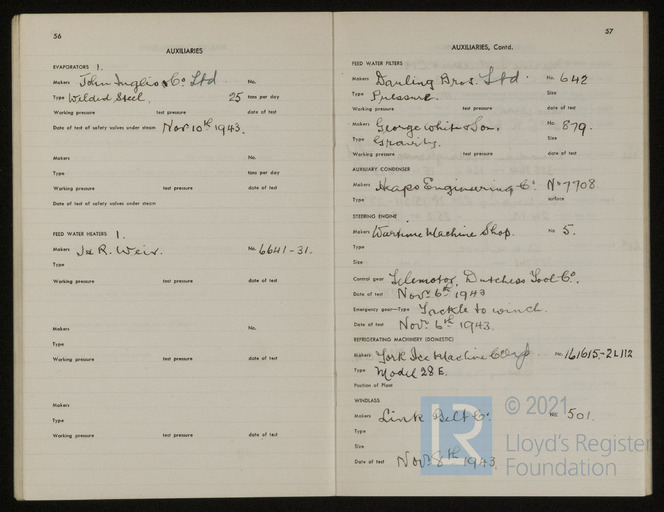 56
AUXILIARIES
EVAPORATORS 1.
Makers John Inglis & Co Ltd No.
Type Welded Steel. 25 tons per day
Working pressure test pressure date of test
Date of test of safety valves under steam Nov 10th 1943.
Makers No.
Type tons per day
Working pressure test pressure date of test
Date of test of safety valves under steam
FEED WATER HEATERS 1.
Makers J & R. Weir. No. 6641-31.
Type
Working pressure test pressure date of test
Makers No.
Type
Working pressure test pressure date of test
Makers
Type
Working pressure test pressure date of test
57
AUXILIARIES, Contd.
FEED WATER FILTERS
Makers Darling Bros. Ltd. No. 642
Type Pressure. Size
Working pressure test pressure date of test
Makers George White & Son. No. 879.
Type Gravity. Size
Working pressure test pressure date of test
AUXILIARY CONDENSER
Makers Heaps Engineering Co. No 7708.
Type surface
STEERING ENGINE
Makers Wartime Machine Shop. No 5.
Type
Size
Control gear Telemotor, Dutchess Tool Co.
Date of test Nov. 6th 1943
Emergency gear—Type Tackle to winch.
Date of test Nov. 6th 1943.
REFRIGERATING MACHINERY (DOMESTIC)
Makers York Ice Machine Corp. No. 161615-2L112
Type Model 28 E.
Position of Plant
WINDLASS
Makers Link Belt Co. No. 501.
Type
Size
Date of test Nov. 8th 1943.
© 2021
LR
Lloyd's Register
Foundation